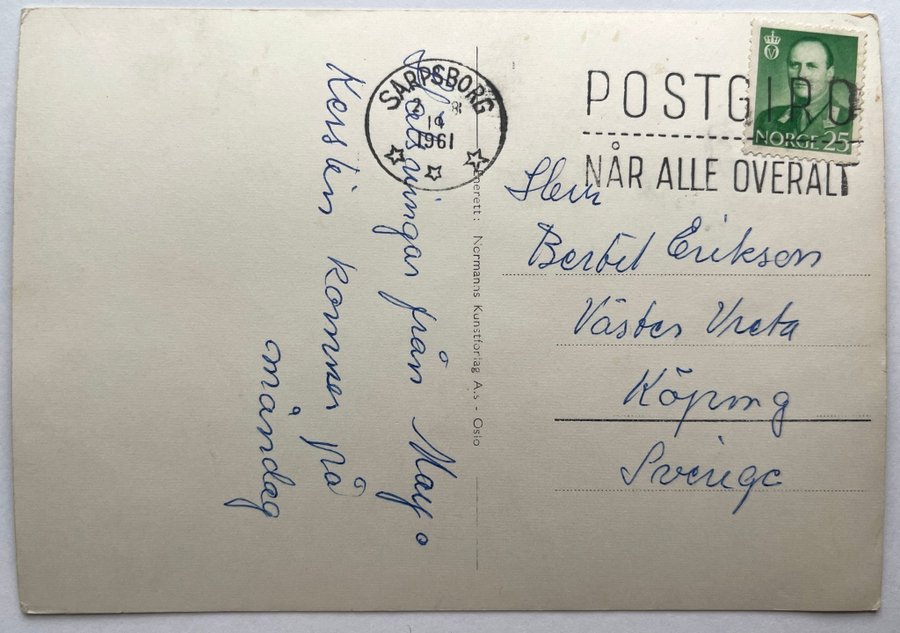 Hälsningar från May o
Kerstin kommer på
måndag
SARPSBORG
2 8
19
1961
Enerett: Normanns Kunstforlag A.s - Oslo
POSTGIRO
NÅR ALLE OVERALT
NORGE 25
Herr
Bertil Erikson
Väster Vreta
Köping
Sverige